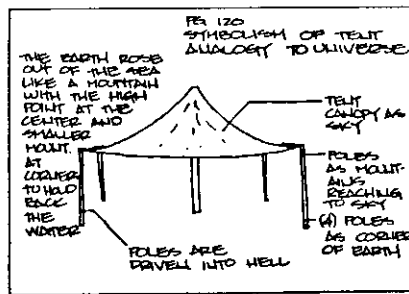 PG 120
SYMBOLISM OF TENT
ANALOGY TO UNIVERSE
THE EARTH ROSE
OUT OF THE SEA
LIKE A MOUNTAIN
WITH THE HIGH
POINT AT THE
CENTER AND
SMALLER
MOUNT.
AT
CORNER
TO HOLD
BACK
THE
WATER
TENT
CANOPY AS
SKY
POLES
AS MOUNT-
AINS
REACHING
TO SKY
(4) POLES
AS CORNER
OF EARTH
POLES ARE
DRIVEN INTO HELL